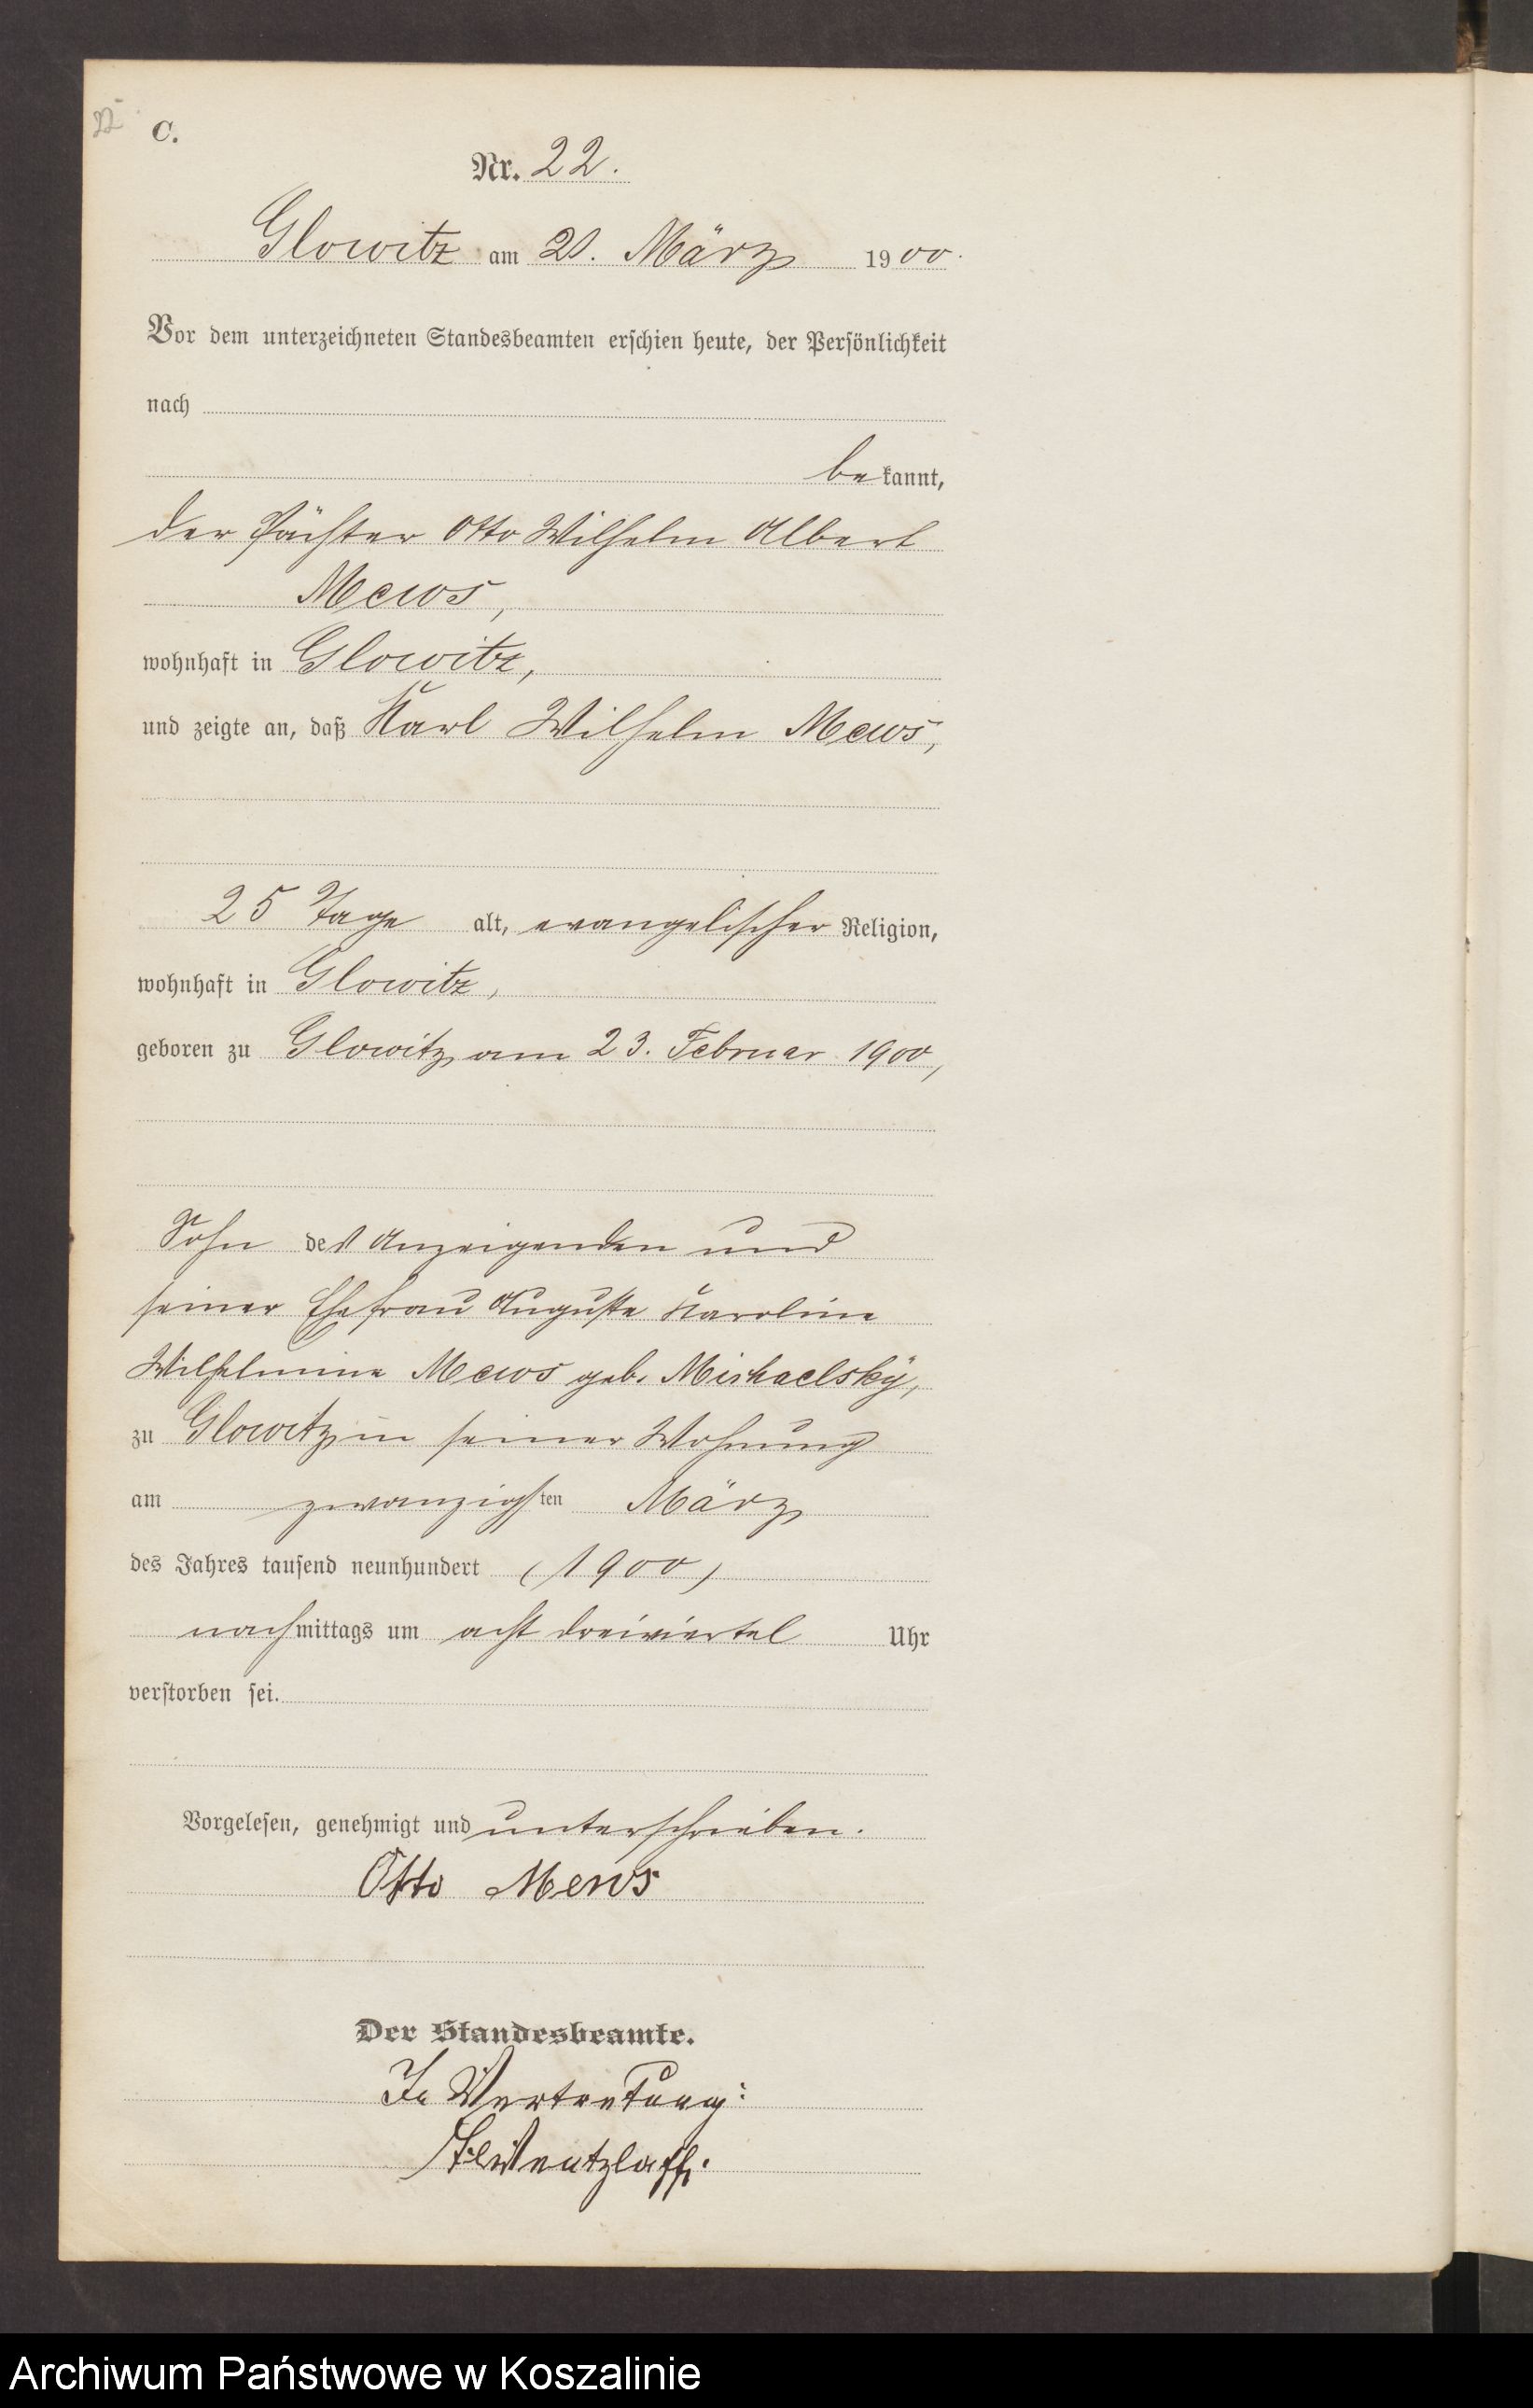 22
C.
Nr. 22.
Glowitz am 21. März 1900.
Vor dem unterzeichneten Standesbeamten erschien heute, der Persönlichkeit
nach
bekannt,
der Pächter Otto Wilhelm Albert
Mews,
wohnhaft in Glowitz,
und zeigte an, daß Karl Wilhelm Mews,
25 Tage alt, evangelischer Religion,
wohnhaft in Glowitz,
geboren zu Glowitz am 23. Februar 1900,
Sohn des Anzeigenden und
seiner Ehefrau Auguste Karoline
Wilhelmine Mews geb. Michaelsky,
zu Glowitz in seiner Wohnung
am zwanzigsten März
des Jahres tausend neunhundert (1900)
nachmittags um acht dreiviertel Uhr
verstorben sei.
Vorgelesen, genehmigt und unterschrieben.
Otto Mews
Der Standesbeamte.
In Vertretung:
Wentzlaff.
Archiwum Państwowe w Koszalinie